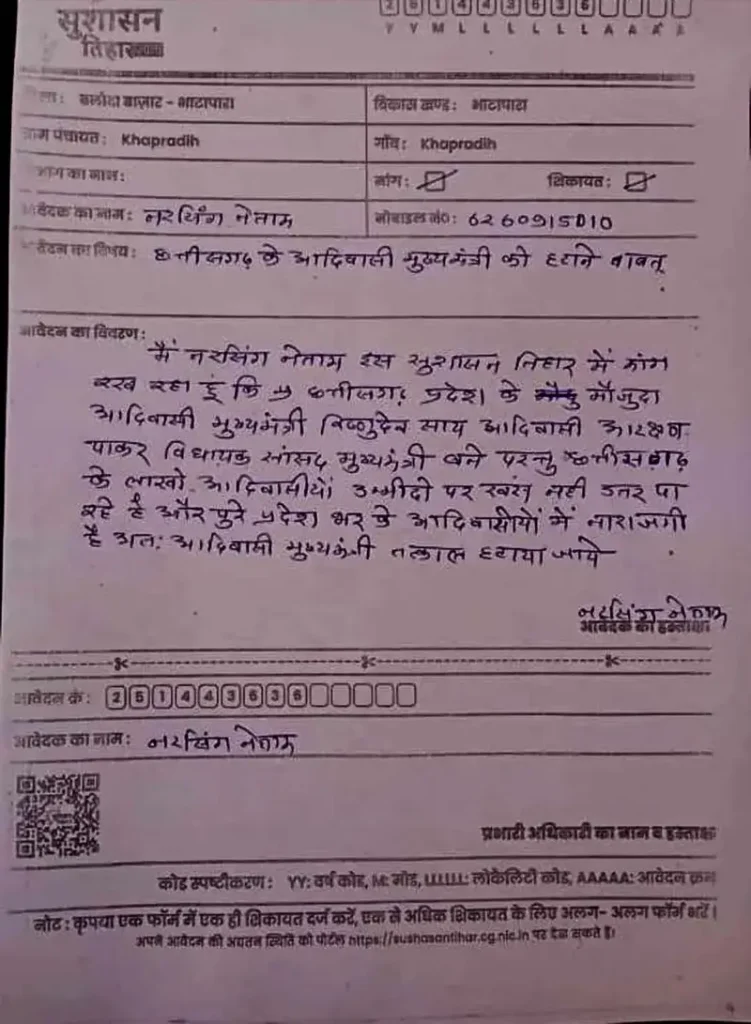 सुशासन
तिहार
2 5 1 4 4 3 6 3 6
Y Y M L L L L L L A A A A
बलौदा बाज़ार - भाटापारा
विकास खण्ड: भाटापारा
ग्राम पंचायत: Khapradih
गाँव: Khapradih
विभाग का नाम:
मांग: शिकायत:
आवेदक का नाम: नरसिंग नेताम
मोबाइल नं0: 6260915010
आवेदन का विषय: छत्तीसगढ़ के आदिवासी मुख्यमंत्री को हटाने बाबत्
आवेदन का विवरण:
मैं नरसिंग नेताम इस सुशासन तिहार में मांग
रख रहा हूं कि छत्तीसगढ़ प्रदेश के मौजुदा
आदिवासी मुख्यमंत्री विष्णुदेव साय आदिवासी आरक्षण
पाकर विधायक सांसद मुख्यमंत्री बने परन्तु छत्तीसगढ़
के लाखो आदिवासीयों उम्मीदो पर नही उतर पा
रहे है और पुरे प्रदेश भर के आदिवासीयों में नाराजगी
है अतः आदिवासी मुख्यमंत्री तत्काल हटाया जाये
नरसिंग नेताम
आवेदक का हस्ताक्षर
आवेदन क्रं: 2 5 1 4 4 3 6 3 6
आवेदक का नाम: नरसिंग नेताम
प्रभारी अधिकारी का नाम व हस्ताक्षर
कोड स्पष्टीकरण: YY: वर्ष कोड, M: मोड, LLLLLL: लोकेलिटी कोड, AAAAA: आवेदन क्रम
नोट: कृपया एक फॉर्म में एक ही शिकायत दर्ज करें, एक से अधिक शिकायत के लिए अलग- अलग फॉर्म भरें।
अपने आवेदन की अद्यतन स्थिति को पोर्टल https://sushasantihar.cg.nic.in पर देख सकते हैं।